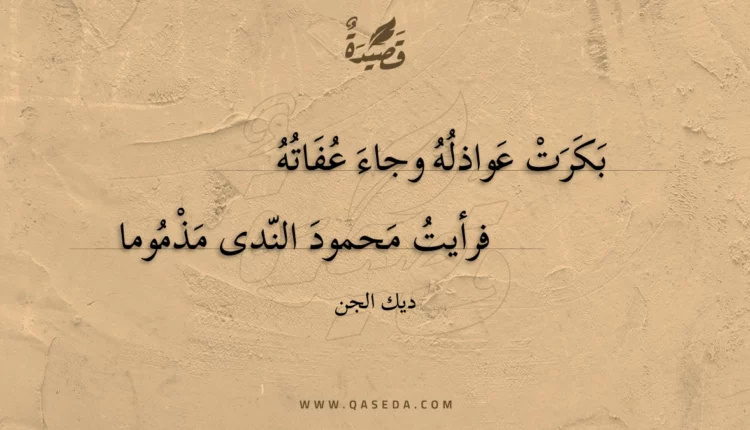 قَصِيْدَةٌ
بَكَرَتْ عَواذلُهُ وجاءَ عُفَاتُهُ
فرأيتُ مَحمودَ النّدى مَذْمُوما
ديك الجن
WWW.QASEDA.COM